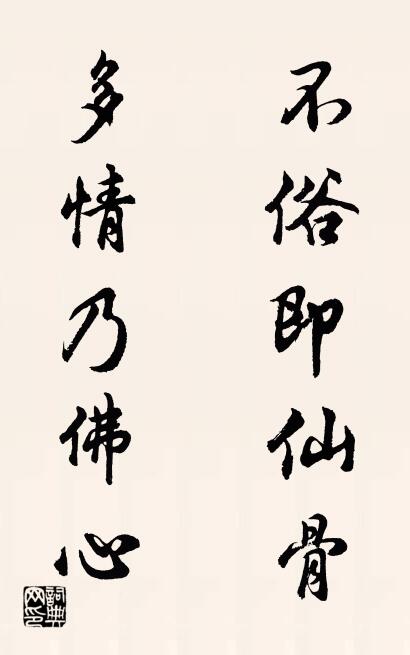 不俗即仙骨
多情乃佛心
詞典網印